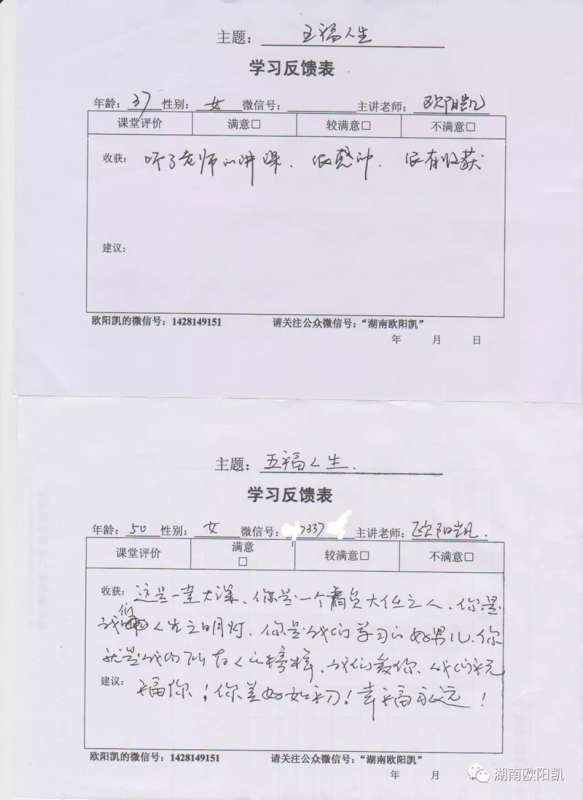 主题： 五福人生
学习反馈表
年龄： 37 性别： 女 微信号： 主讲老师： 欧阳凯
课堂评价 满意□ 较满意□ 不满意□
收获： 听了老师的讲课、很感冲、很有收获
建议：
欧阳凯的微信号：1428149151 请关注公众微信号：“湖南欧阳凯”
年 月 日
主题： 五福人生.
学习反馈表
年龄： 50 性别： 女 微信号： 7337 主讲老师： 欧阳凯.
课堂评价 满意□ 较满意□ 不满意□
收获： 这是一堂大课、你是一个肩负大任之人、你是
我们人生之明灯．你是我们学习的好男儿．你
就是我们所有人的榜样、我们爱你、我们祝
建议： 福你！你美好如初！幸福永远！
欧阳凯的微信号：1428149151 请关注公众微信号：“湖南欧阳凯”
年 月 日
湖南欧阳凯